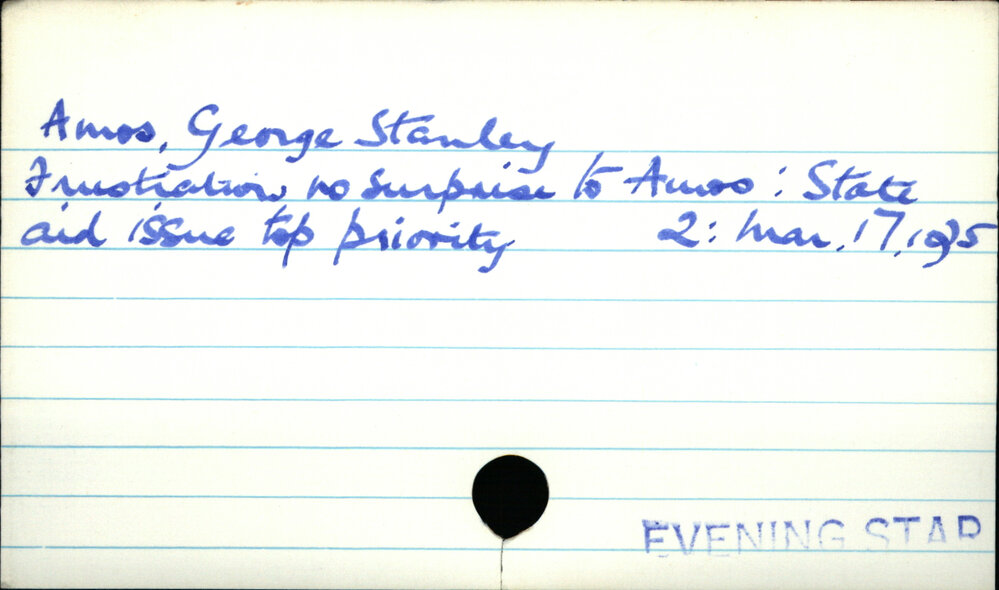 Amos, George Stanley
Frustration no surprise to Amos : State
aid issue top priority 2: Mar. 17, 1975
EVENING STAR